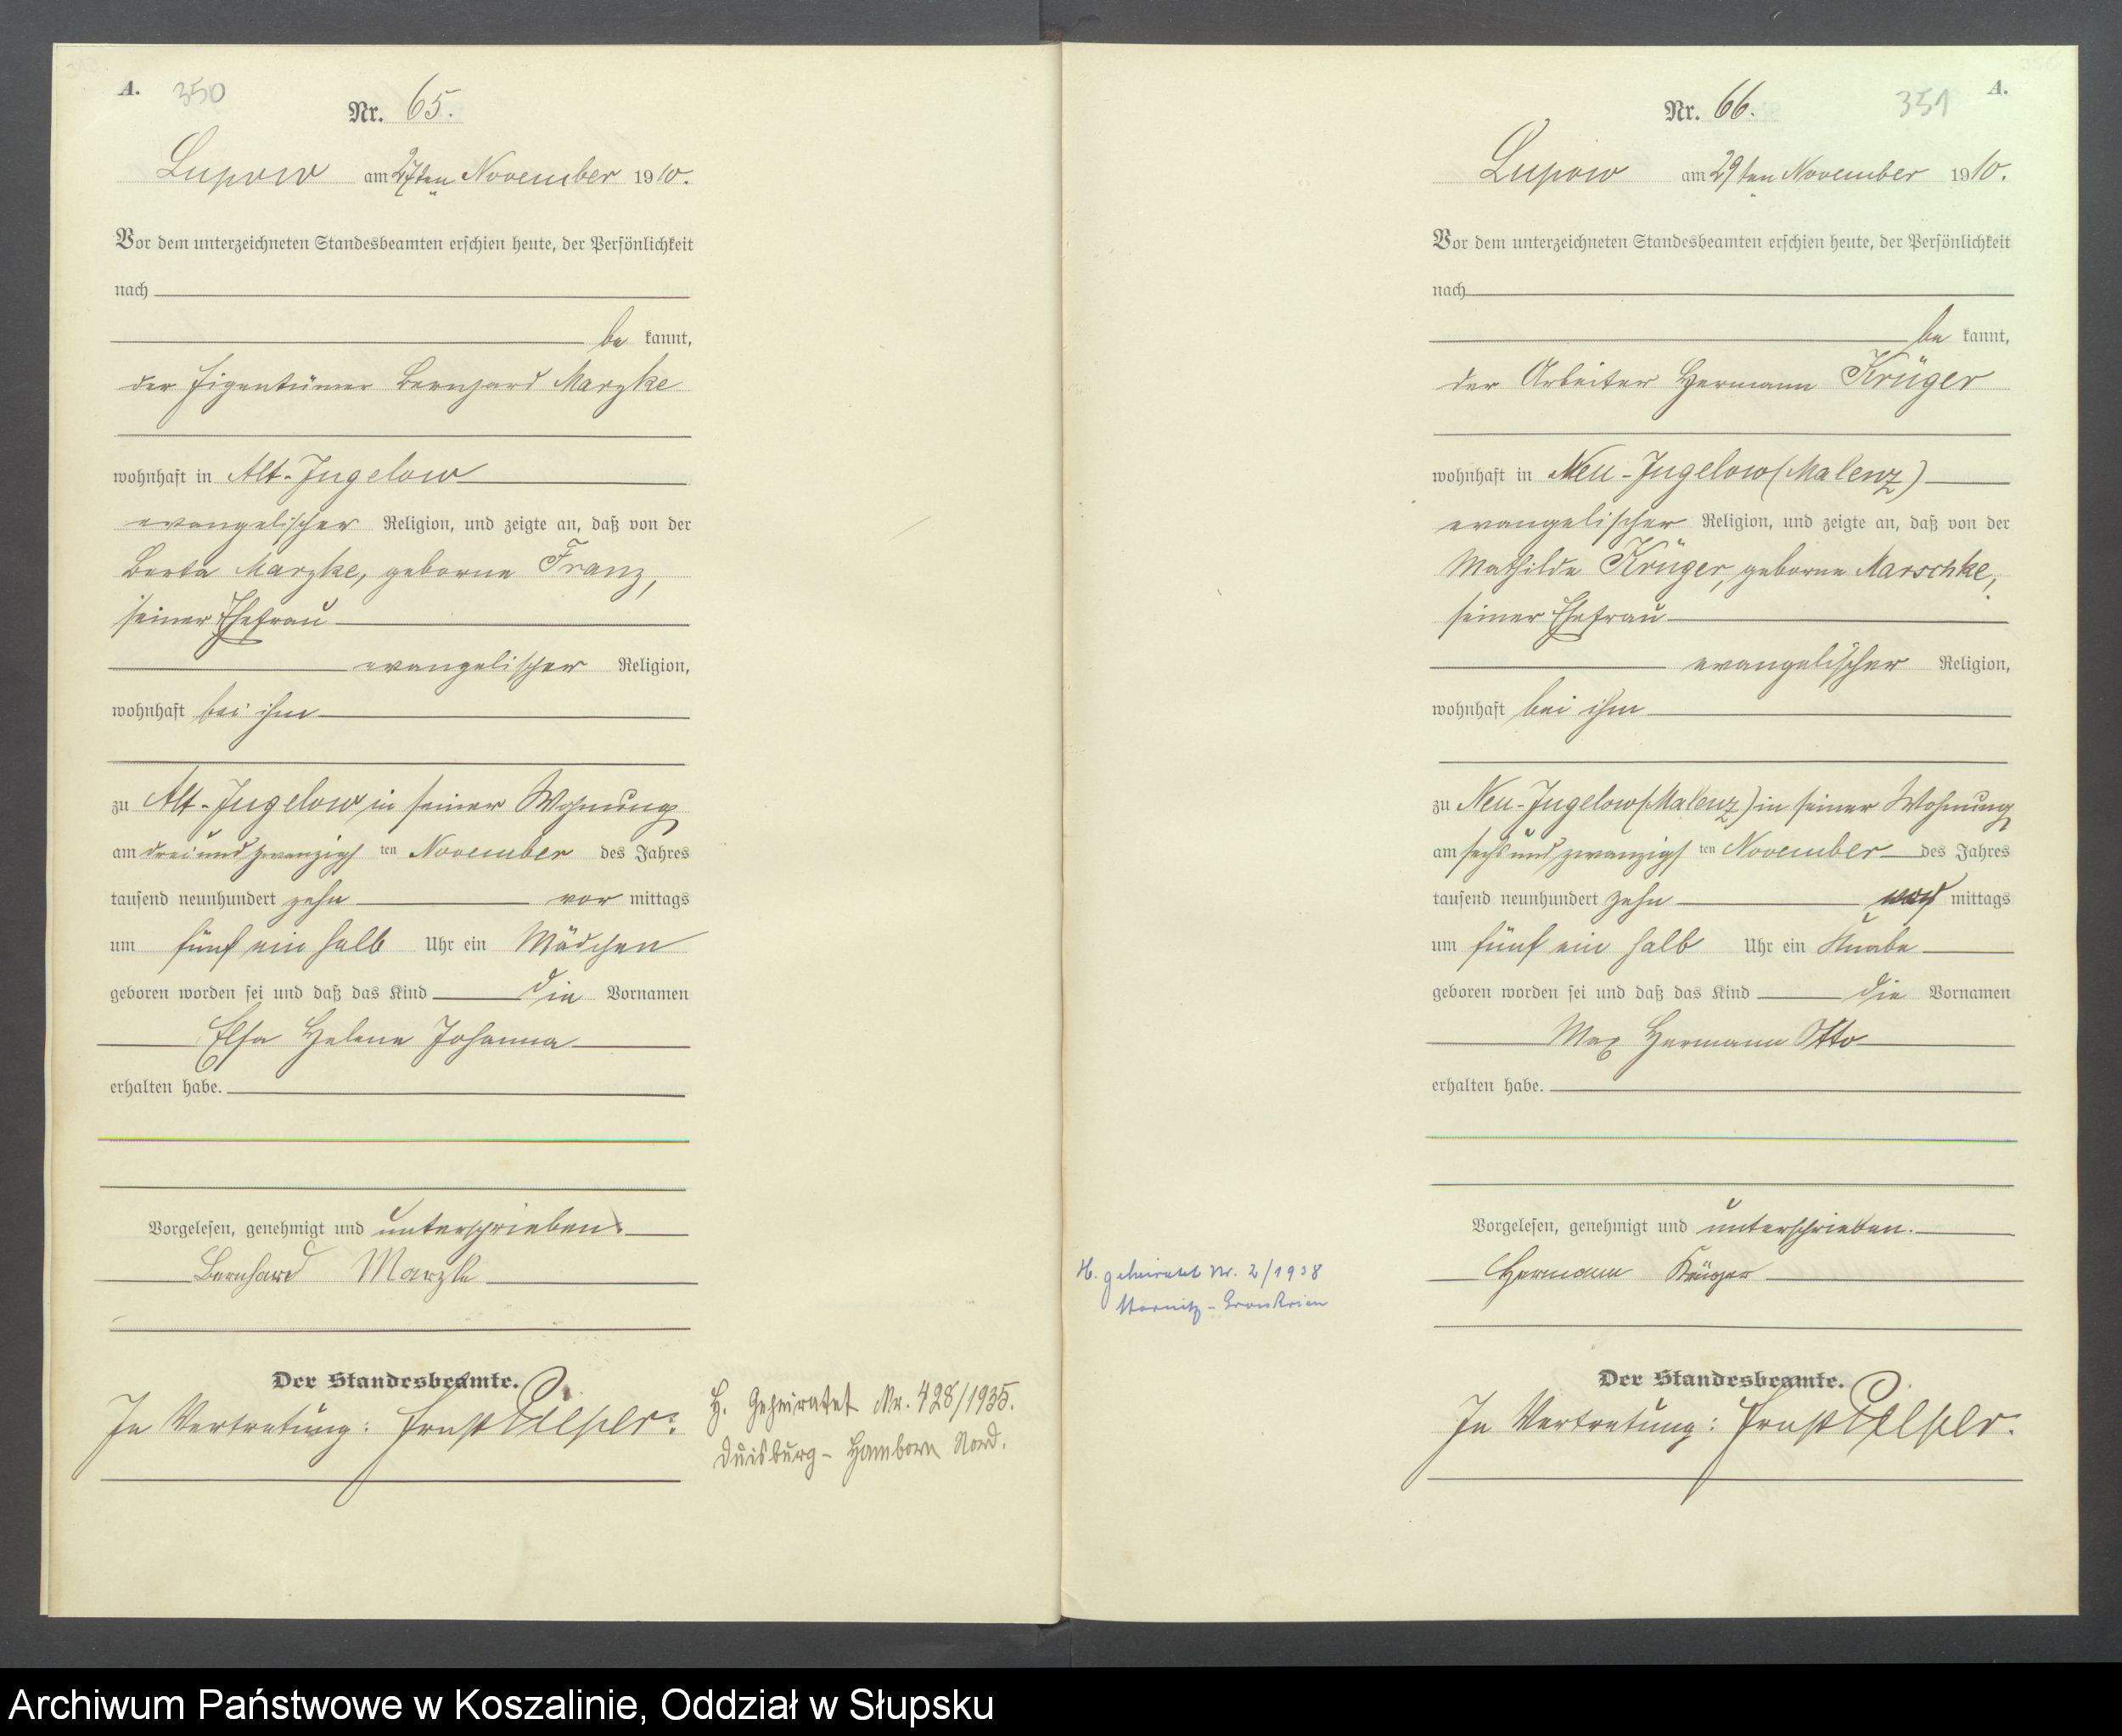 A. 350
Nr. 65.
Lupow am 27ten November 1910.
Vor dem unterzeichneten Standesbeamten erschien heute, der Persönlichkeit
nach
be kannt,
der Eigentümer Bernhard Marzke
wohnhaft in Alt-Jugelow
evangelischer Religion, und zeigte an, daß von der
Berta Marzke, geborne Franz,
seiner Ehefrau
evangelischer Religion,
wohnhaft bei ihm
zu Alt-Jugelow in seiner Wohnung
am dreiundzwanzigsten November des Jahres
tausend neunhundert zehn vor mittags
um fünf ein halb Uhr ein Mädchen
geboren worden sei und daß das Kind die Vornamen
Elsa Helene Johanna
erhalten habe.
Vorgelesen, genehmigt und unterschrieben.
Bernhard Marzke
Der Standesbeamte.
In Vertretung: Ernst
H. Geheiratet Nr. 428/1935.
Duisburg-Hamborn Nord.
351 A.
Nr. 66.
Lupow am 29ten November 1910.
Vor dem unterzeichneten Standesbeamten erschien heute, der Persönlichkeit
nach
be kannt,
der Arbeiter Hermann Krüger
wohnhaft in Neu-Jugelow (Malenz)
evangelischer Religion, und zeigte an, daß von der
Mathilde Krüger, geborne Marschke,
seiner Ehefrau
evangelischer Religion,
wohnhaft bei ihm
zu Neu-Jugelow (Malenz) in seiner Wohnung
am sechsundzwanzigsten November des Jahres
tausend neunhundert zehn nach mittags
um fünf ein halb Uhr ein Knabe
geboren worden sei und daß das Kind die Vornamen
Max Hermann Otto
erhalten habe.
Vorgelesen, genehmigt und unterschrieben.
Hermann Krüger
H. geheiratet Nr. 2/1938
Der Standesbeamte.
In Vertretung: Ernst
Archiwum Państwowe w Koszalinie, Oddział w Słupsku